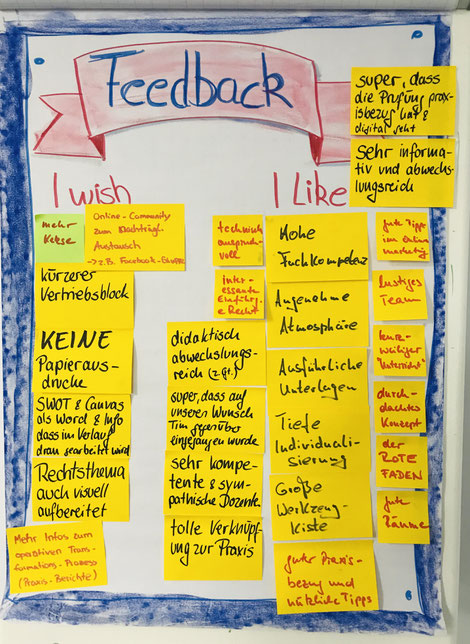 Feedback
super, dass
die Prüfung prax-
isbezug hat &
digital geht
sehr informa-
tiv und abwechs-
lungsreich
I wish
I Like
mehr
Kekse
Online-Community
zum
Austausch
→ z.B. Facebook-Gruppe
kürzerer
Vertriebsblock
KEINE
Papieraus-
drucke
SWOT & Canvas
als Word & Info
dass im Verlauf
dran gearbeitet wird
Rechtsthema
auch visuell
aufbereitet
Mehr Infos zum
operativen Trans-
formations-Prozess
(Praxis-Berichte)
technisch
anspruch-
voll
inter-
essante
Einführg.
Recht
didaktisch
abwechslungs-
reich (z.gr.)
super, dass auf
unseren Wunsch
Tim gegenüber
eingegangen wurde
sehr kompe-
tente & sym-
pathische Dozente
tolle Verknüpf-
ung zur Praxis
Hohe
Fachkompetenz
Angenehme
Atmosphäre
Ausführliche
Unterlagen
Tiefe
Individuali-
sierung
Große
Werkzeug-
Kiste
guter Praxis-
bezug und
nützliche Tipps
gute Tipps
im Online
marketing
lustiges
Team
kurz-
weiliger
"Unterricht"
durch-
dachtes
Konzept
der
ROTE
FADEN
gute
Räume